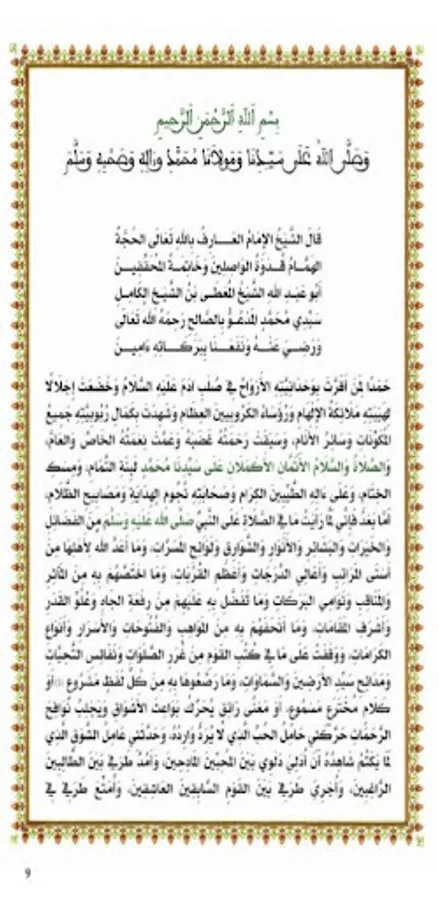 بِسْمِ اللَّهِ الرَّحْمَنِ الرَّحِيمِ
وَصَلَّى اللَّهُ عَلَى سَيِّدِنَا وَمَوْلَانَا مُحَمَّدٍ وَءَالِهِ وَصَحْبِهِ وَسَلَّمَ
قَالَ الشَّيْخُ الإِمَامُ العَارِفُ بِاللهِ تَعَالَى الحُجَّةُ
الهُمَامُ قُدْوَةُ الوَاصِلِينَ وَخَاتِمَةُ المُحَقِّقِينَ
أَبُو عَبْدِ اللهِ الشَّيْخُ المُعْطَى بْنُ الشَّيْخِ الكَامِلِ
سَيِّدِي مُحَمَّدٍ المَدْعُوِّ بِالصَّالِحِ رَحِمَهُ اللهُ تَعَالَى
وَرَضِيَ عَنْهُ وَنَفَعَنَا بِبَرَكَاتِهِ ءَامِينَ
حَمْدًا لِمَنْ أَقَرَّتْ بِوَحْدَانِيَّتِهِ الأَرْوَاحُ فِي صُلْبِ ءَادَمَ عَلَيْهِ السَّلَامُ وَخَضَعَتْ إِجْلَالًا
لِهَيْبَتِهِ مَلَائِكَةُ الإِلْهَامِ وَرُؤَسَاءُ الكَرُوبِيِّينَ العِظَامِ وَشَهِدَتْ بِكَمَالِ رُبُوبِيَّتِهِ جَمِيعُ
المُكَوَّنَاتِ وَسَائِرُ الأَنَامِ، وَسَبَقَتْ رَحْمَتُهُ غَضَبَهُ وَعَمَّتْ نِعْمَتُهُ الخَاصَّ وَالعَامَّ،
وَالصَّلَاةُ وَالسَّلَامُ الأَتَمَّانِ الأَكْمَلَانِ عَلَى سَيِّدِنَا مُحَمَّدٍ لَبِنَةِ التَّمَامِ، وَمِسْكِ
الخِتَامِ، وَعَلَى ءَالِهِ الطَّيِّبِينَ الكِرَامِ وَصَحَابَتِهِ نُجُومِ الهِدَايَةِ وَمَصَابِيحِ الظَّلَامِ،
أَمَّا بَعْدُ فَإِنِّي لَمَّا رَأَيْتُ مَا فِي الصَّلَاةِ عَلَى النَّبِيِّ صَلَّى اللهُ عَلَيْهِ وَسَلَّمَ مِنَ الفَضَائِلِ
وَالخَيْرَاتِ وَالبَشَائِرِ وَالأَنْوَارِ وَالشَّوَارِقِ وَلَوَائِحِ المَسَرَّاتِ، وَمَا أَعَدَّ اللهُ لِأَهْلِهَا مِنْ
أَسْنَى المَرَاتِبِ وَأَعَالِي الدَّرَجَاتِ وَأَعْظَمِ القُرُبَاتِ، وَمَا اخْتَصَّهُمْ بِهِ مِنَ المَآثِرِ
وَالمَنَاقِبِ وَنَوَامِي البَرَكَاتِ وَمَا تَفَضَّلَ بِهِ عَلَيْهِمْ مِنْ رِفْعَةِ الجَاهِ وَعُلُوِّ القَدْرِ
وَأَشْرَفِ المَقَامَاتِ، وَمَا أَتْحَفَهُمْ بِهِ مِنَ المَوَاهِبِ وَالفُتُوحَاتِ وَالأَسْرَارِ وَأَنْوَاعِ
الكَرَامَاتِ، وَوَقَفْتُ عَلَى مَا فِي كُتُبِ القَوْمِ مِنْ غُرَرِ الصَّلَوَاتِ وَنَفَائِسِ التَّحِيَّاتِ
وَمَدَائِحِ سَيِّدِ الأَرَضِينَ وَالسَّمَاوَاتِ، وَمَا رَصَّعُوهَا بِهِ مِنْ كُلِّ لَفْظٍ مَشْرُوعٍ (1) أَوْ
كَلَامٍ مُخْتَرَعٍ مَسْمُوعٍ، أَوْ مَعْنًى رَائِقٍ يُحَرِّكُ بَوَاعِثَ الأَشْوَاقِ وَيَجْلِبُ نَوَافِحَ
الرَّحَمَاتِ حَرَّكَنِي حَامِلُ الحُبِّ الَّذِي لَا يُرَدُّ وَارِدُهُ، وَحَدَّثَنِي عَامِلُ الشَّوْقِ الَّذِي
لَمَّا يُكْتَمْ شَاهِدُهُ أَنْ أُدْلِيَ دَلْوِي بَيْنَ المُحِبِّينَ المَادِحِينَ، وَأَمُدَّ طَرَفِي بَيْنَ الطَّالِبِينَ
الرَّاغِبِينَ، وَأُجْرِيَ طِرْفِي بَيْنَ القَوْمِ السَّابِقِينَ العَاشِقِينَ، وَأُمَتِّعَ طَرْفِي فِي
9